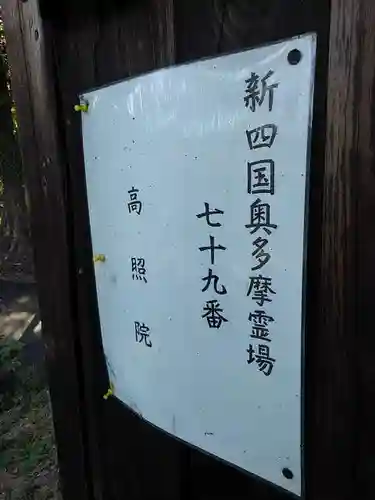 新四国奥多摩霊場
七十九番
高照院